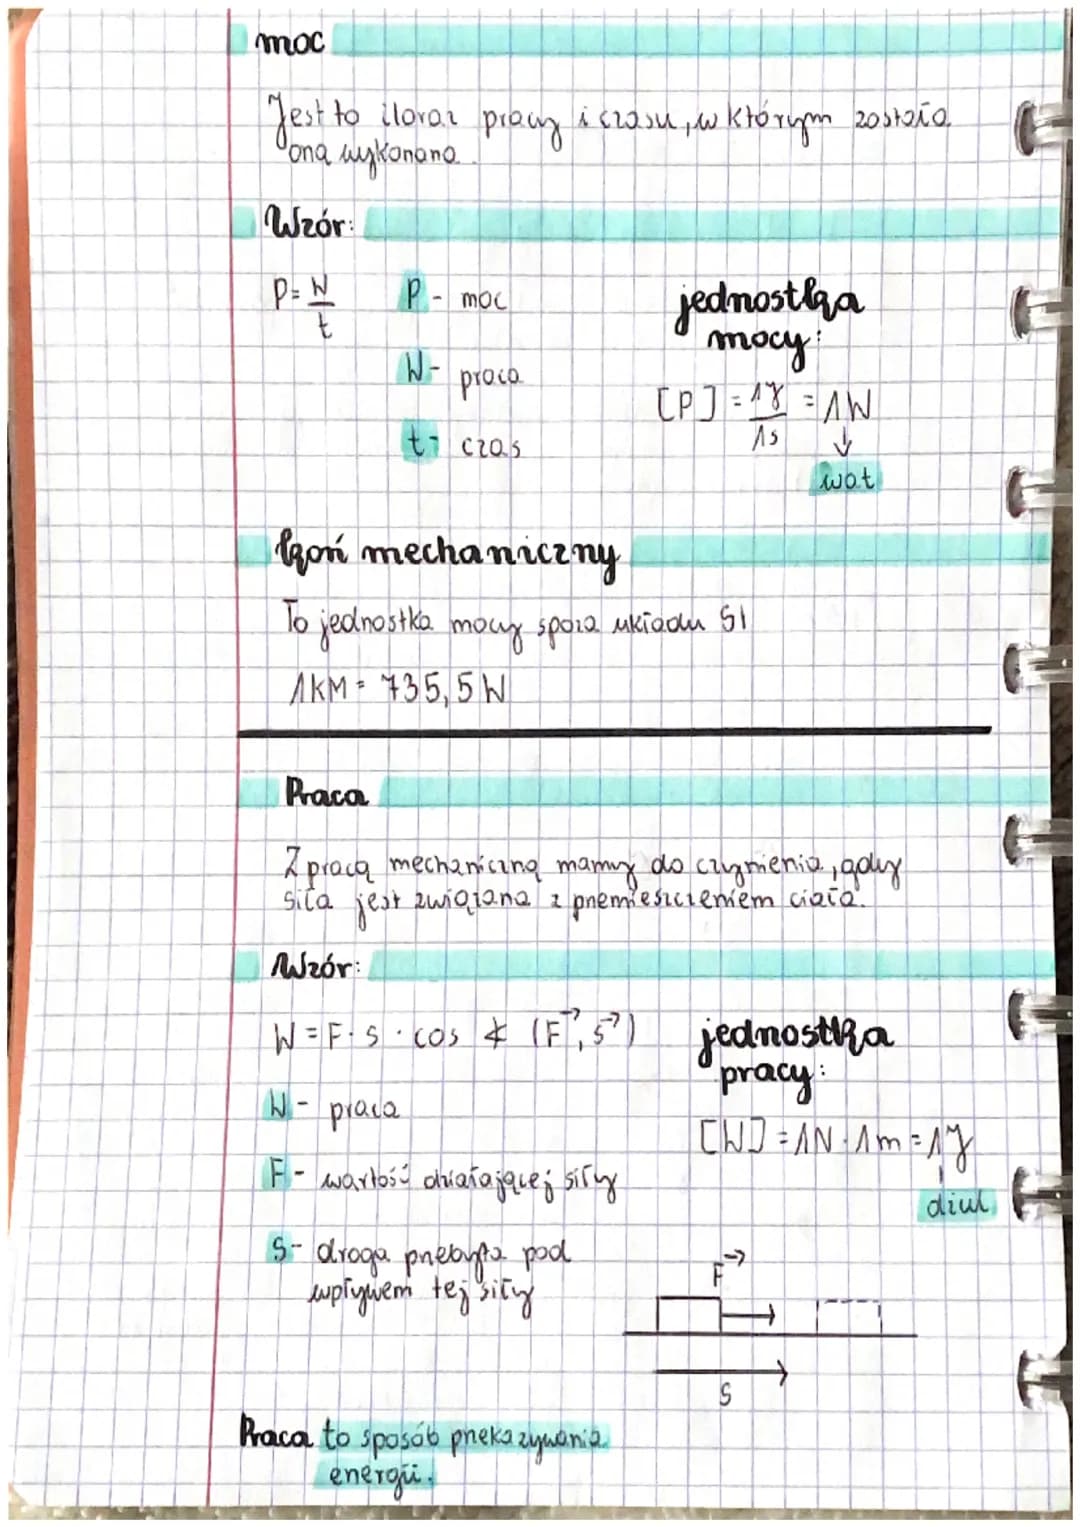 moc
Jest to iloraz pracy i czasu, w którym została
ona wykonana.
Wzór:
P = W/t
P - moc
W - praca
t - czas
jednostka
mocy:
[P] = 1J/1s = 1W
↓
wat
koń mechaniczny
To jednostka mocy spoza układu SI
1KM = 735,5 W
Praca
Z pracą mechaniczną mamy do czynienia, gdy
siła jest związana z przemieszczeniem ciała.
Wzór:
W = F · s · cos ∢ (F→, s→)
W - praca
F - wartość działającej siły
S - droga przebyta pod
wpływem tej siły
jednostka
pracy:
[W] = 1N · 1m = 1J
dżul
F→
S
Praca to sposób przekazywania
energii.